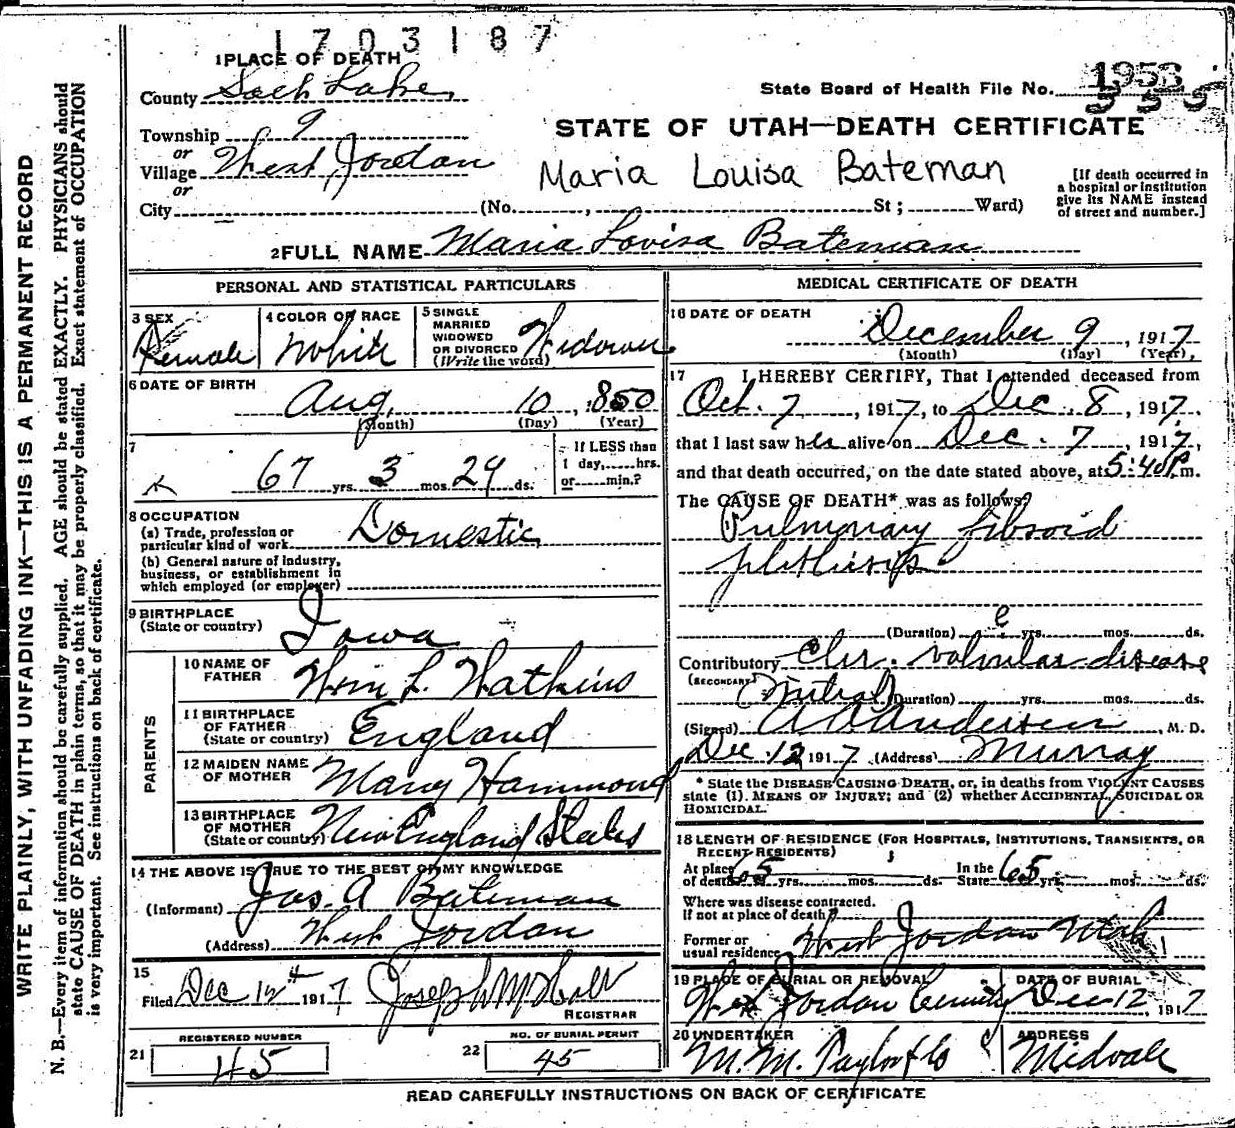 1703187
1 PLACE OF DEATH
County Salt Lake
State Board of Health File No. 1953
555
STATE OF UTAH—DEATH CERTIFICATE
Township 9
or
Village West Jordan
Maria Louisa Bateman
or
City (No. , St ; Ward)
[If death occurred in
a hospital or institution
give its NAME instead
of street and number.]
2 FULL NAME Maria Lovisa Bateman
PERSONAL AND STATISTICAL PARTICULARS
3 SEX Female
4 COLOR OR RACE White
5 SINGLE
MARRIED
WIDOWED
OR DIVORCED
(Write the word) Widown
6 DATE OF BIRTH
Aug. 10, 1850
(Month) (Day) (Year)
7
67 yrs. 3 mos. 29 ds.
If LESS than
1 day,......hrs.
or......min.?
8 OCCUPATION
(a) Trade, profession or
particular kind of work Domestic
(b) General nature of industry,
business, or establishment in
which employed (or employer)
9 BIRTHPLACE
(State or country) Iowa
PARENTS
10 NAME OF
FATHER Wm L. Watkins
11 BIRTHPLACE
OF FATHER
(State or country) England
12 MAIDEN NAME
OF MOTHER Mary Hammond
13 BIRTHPLACE
OF MOTHER
(State or country) New England States
14 THE ABOVE IS TRUE TO THE BEST OF MY KNOWLEDGE
(Informant) Jas. A Bateman
(Address) West Jordan
15
Filed Dec 12th 1917 Joseph M Holt
REGISTRAR
REGISTERED NUMBER
21 45
NO. OF BURIAL PERMIT
22 45
MEDICAL CERTIFICATE OF DEATH
16 DATE OF DEATH
December 9, 1917
(Month) (Day) (Year)
17 I HEREBY CERTIFY, That I attended deceased from
Oct. 7, 1917, to Dec. 8, 1917,
that I last saw her alive on Dec. 7, 1917,
and that death occurred, on the date stated above, at 5:40 P.m.
The CAUSE OF DEATH* was as follows:
Pulmonary fibroid
phthisis
(Duration) ? yrs. mos. ds.
Contributory Chr. valvular disease
(SECONDARY) Mitral (Duration) yrs. mos. ds.
(Signed) A Andersen, M. D.
Dec. 12 1917 (Address) Murray
* State the DISEASE CAUSING DEATH, or, in deaths from VIOLENT CAUSES
state (1) MEANS OF INJURY; and (2) whether ACCIDENTAL, SUICIDAL OR
HOMICIDAL.
18 LENGTH OF RESIDENCE (FOR HOSPITALS, INSTITUTIONS, TRANSIENTS, OR
RECENT RESIDENTS)
At place
of death 65 yrs. mos. ds.
In the
State 65 yrs. mos. ds.
Where was disease contracted.
If not at place of death?
Former or
usual residence West Jordan Utah
19 PLACE OF BURIAL OR REMOVAL
West Jordan Cemitry
DATE OF BURIAL
Dec 12, 1917
20 UNDERTAKER
M. M. Taylor & Co
ADDRESS
Midvale
READ CAREFULLY INSTRUCTIONS ON BACK OF CERTIFICATE
WRITE PLAINLY, WITH UNFADING INK—THIS IS A PERMANENT RECORD
N. B.—Every item of information should be carefully supplied. AGE should be stated EXACTLY. PHYSICIANS should
state CAUSE OF DEATH in plain terms, so that it may be properly classified. Exact statement of OCCUPATION
is very important. See instructions on back of certificate.